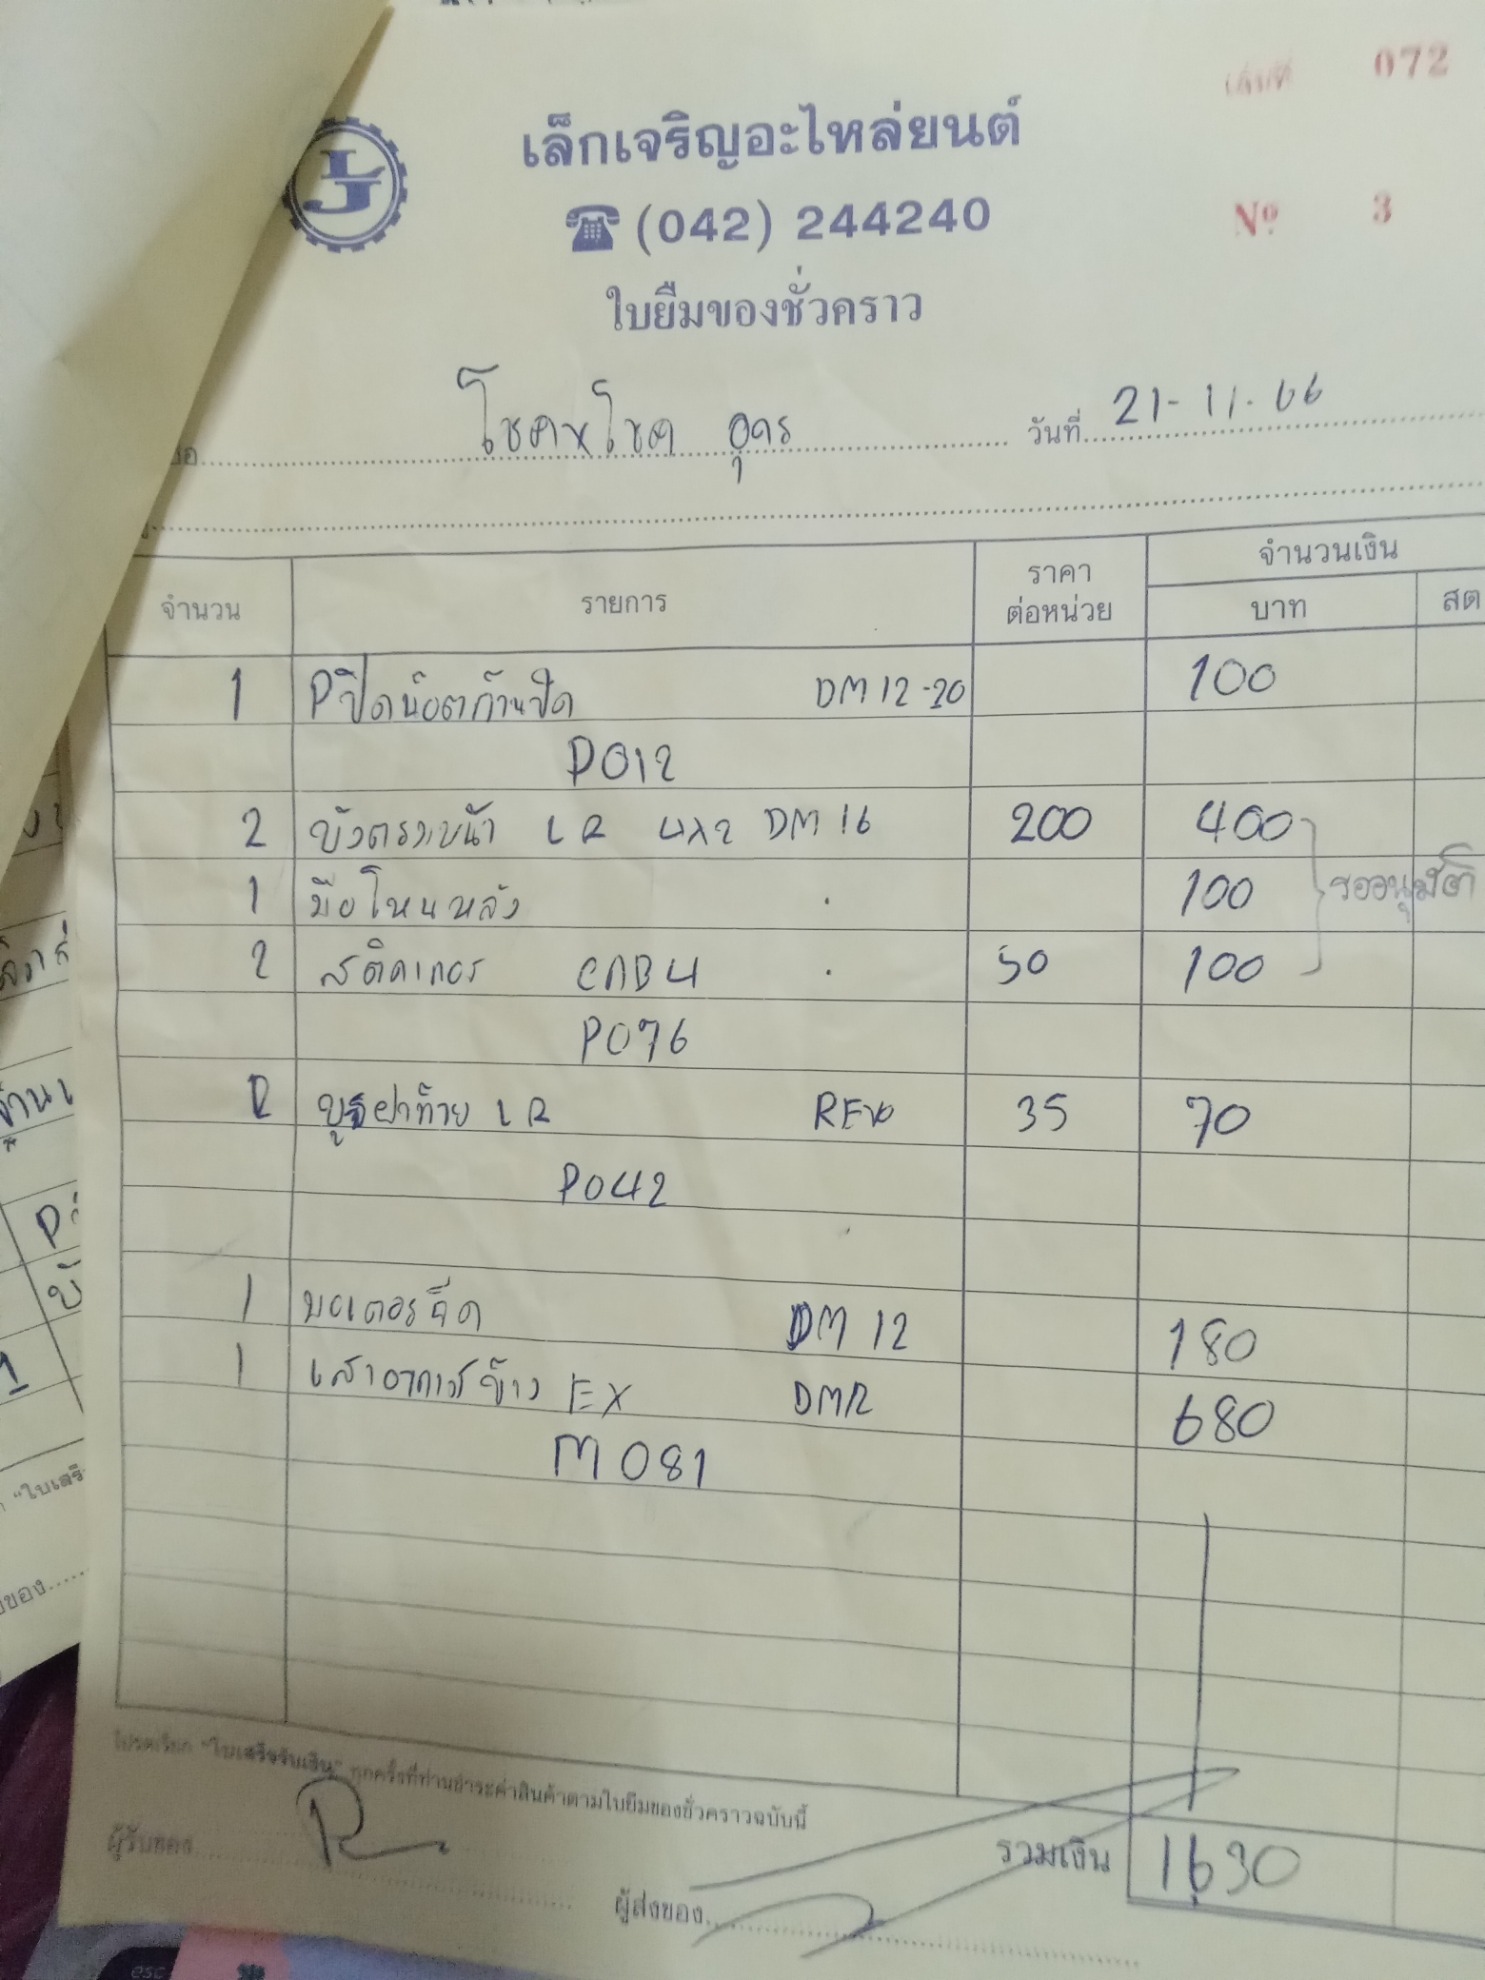 เล่มที่ 072
เล็กเจริญอะไหล่ยนต์
LJ
(042) 244240
Nº 3
ใบยืมของชั่วคราว
โชคxโชค อุดร วันที่ 21-11-66
จำนวน รายการ ราคาต่อหน่วย จำนวนเงิน
บาท สต
1 Pปิดน๊อตก้านปัด DM 12-20 100
P012
2 บังตรงหน้า LR 4x2 DM 16 200 400
1 มือโหนหลัง . 100 รออนุมัติ
2 สติคเกอร์ CAB4 . 50 100
P076
2 บูธฝาท้าย LR REVO 35 70
P042
1 มอเตอร์ฉีด DM 12 180
1 เสาอากาศข้าง EX DM12 680
M 081
โปรดเรียก "ใบเสร็จรับเงิน" ทุกครั้งที่ท่านชำระค่าสินค้าตามใบยืมของชั่วคราวฉบับนี้
รวมเงิน 1630
ผู้รับของ
ผู้ส่งของ
esc